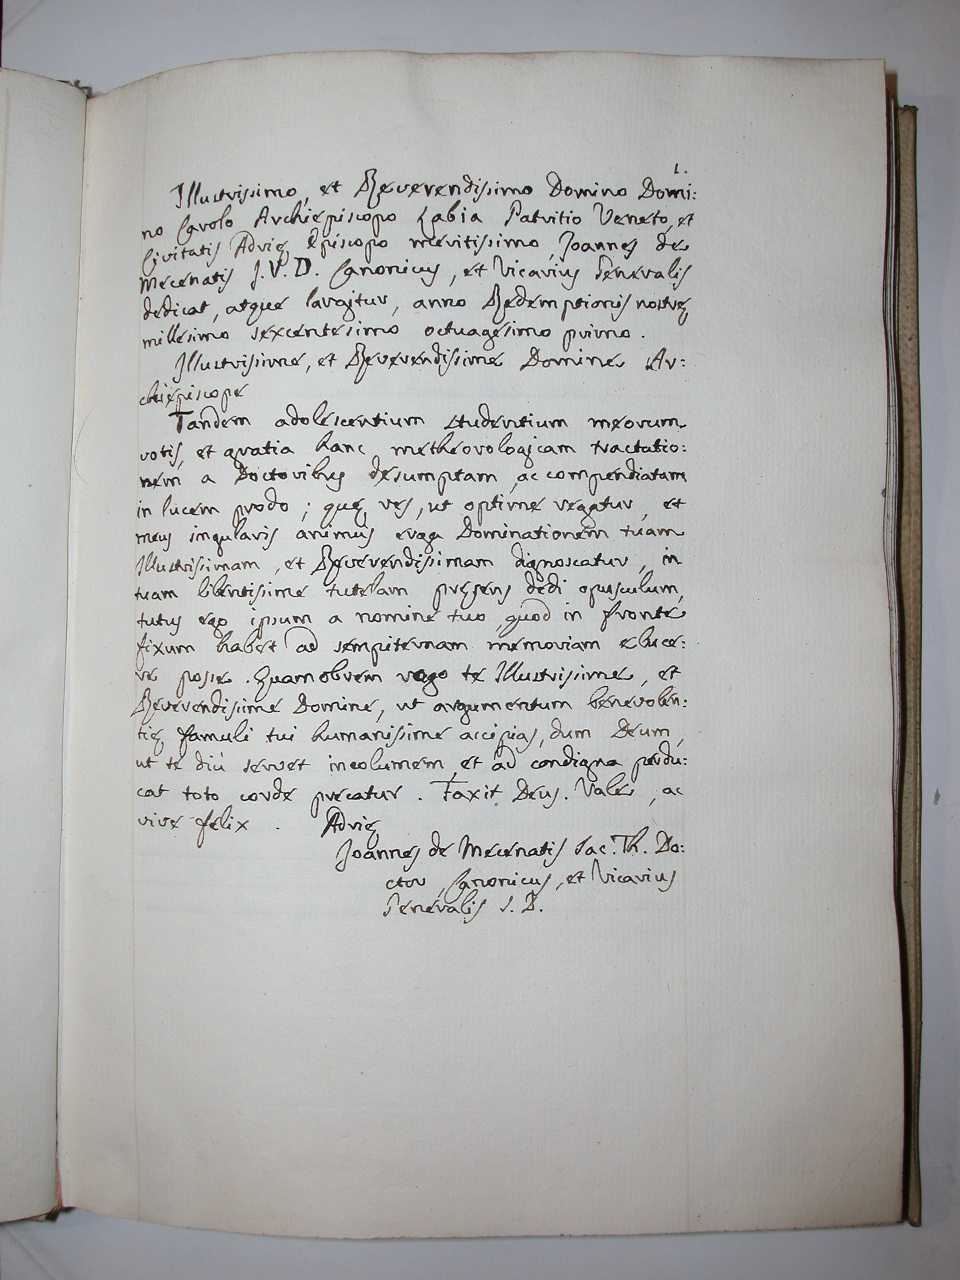 1.
Illustrissimo, et Reverendissimo Domino Domi:
no Carolo Archiepiscopo Labia Patritio Veneto, et
Civitatis Adrię Episcopo meritissimo, Joannes de
Mecenatis J. V. D. Canonicus, et Vicarius Generalis
dedicat, atque largitur, anno Redemptionis nostrę
millesimo sexcentesimo octuagesimo primo.
Illustrissime, et Reverendissime Domine Ar:
chiepiscope
Tandem adolescentium studentium meorum
votis, et gratia hanc metheorologicam tractatio:
nem a Doctoribus desumptam, ac compendiatam
in lucem prodo; quę res, ut optime regatur, et
meus singularis animus erga Dominationem tuam
Illustrissimam, et Reverendissimam dignoscatur, in
tuam libentissime tutelam pręsens dedi opusculum,
tutus ego ipsum a nomine tuo, quod in fronte
fixum habet ad sempiternam memoriam eluce:
re posse. Quamobrem rogo te Illustrissime, et
Reverendissime Domine, ut argumentum benevolen:
tię famuli tui humanissime accipias, dum Deum,
ut te diù servet incolumem, et ad condigna perdu:
cat toto corde precatur. Faxit Deus. Vale, ac
vive felix. Adrię
Joannes de Mecenatis Sac. Th. Do:
ctor, Canonicus, et Vicarius
Generalis